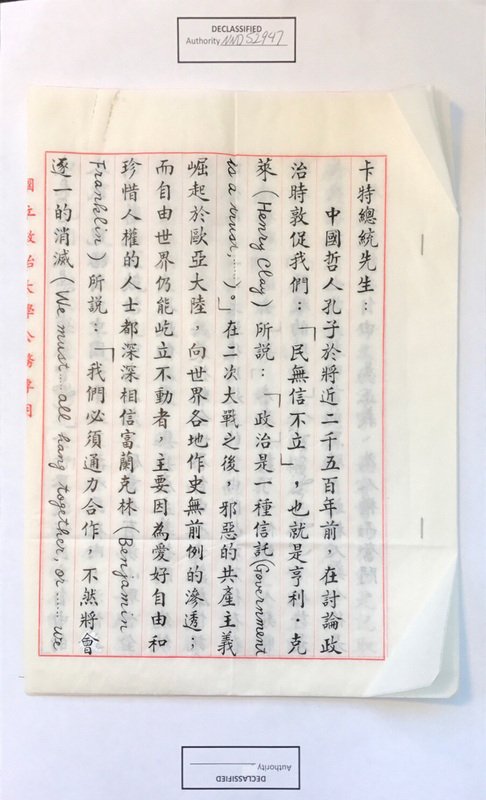 DECLASSIFIED
Authority NND 52947
卡特總統先生：
中國哲人孔子於將近二千五百年前，在討論政
治時敦促我們：「民無信不立」，也就是亨利．克
萊（Henry Clay）所說：「政治是一種信託（Government
is a trust,……）。」在二次大戰之後，邪惡的共產主義
崛起於歐亞大陸，向世界各地作史無前例的滲透；
而自由世界仍能屹立不動者，主要因為愛好自由和
珍惜人權的人士都深深相信富蘭克林（Benjamin
Franklin）所說：「我們必須通力合作，不然將會
逐一的消滅（We must…… all hang together, or …… we
國立政治大學公務專用
Authority
DECLASSIFIED